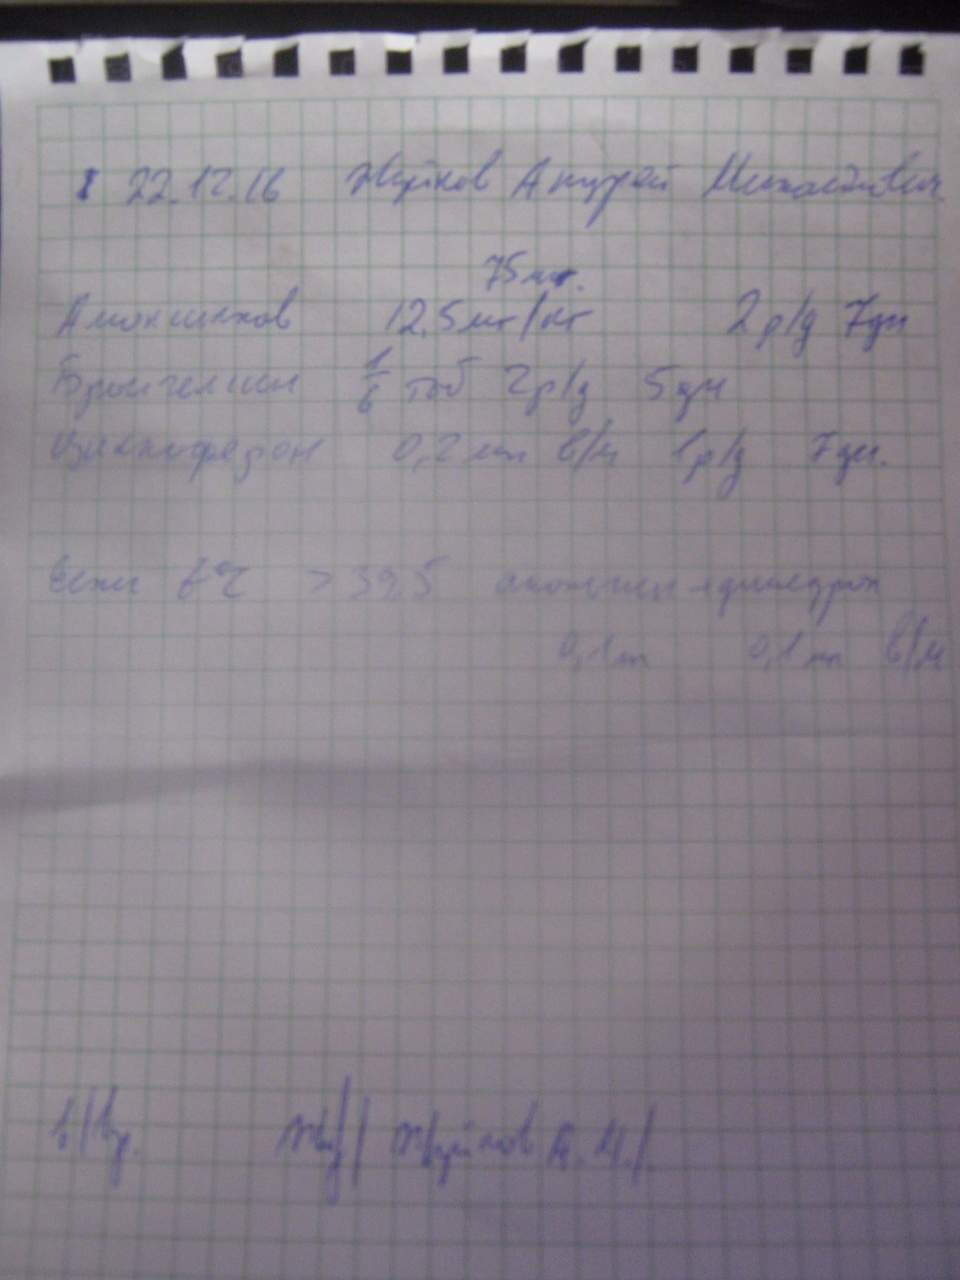 22.12.16 Жуйков Андрей Михайлович
75 мг.
Амоксиклав 12.5 мг/кг 2 р/д 7 дн
1/6 таб 2 р/д 5 дн
Циклоферон 0,2 мл в/м 1 р/д 7 дн.
Если t°C > 39,5 анальгин + димедрол
0,1 мл 0,1 мл в/м
в/вр. Жуйков А. М./